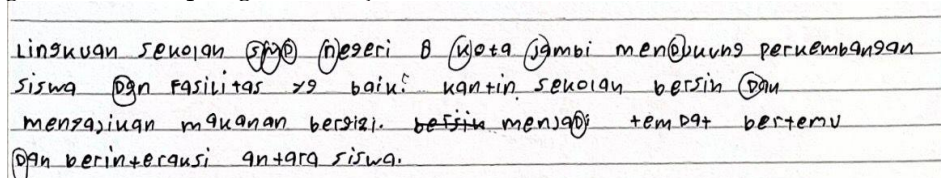 Lingkuan sekolah SMP Negeri 8 Kota Jambi menDukung perkembangan
siswa Dgn Fasilitas yg baik: kantin sekolah bersih Dan
mengajikan makanan bergizi. bersih menjaDi temDat bertemu
Dan berinteraksi antara siswa.